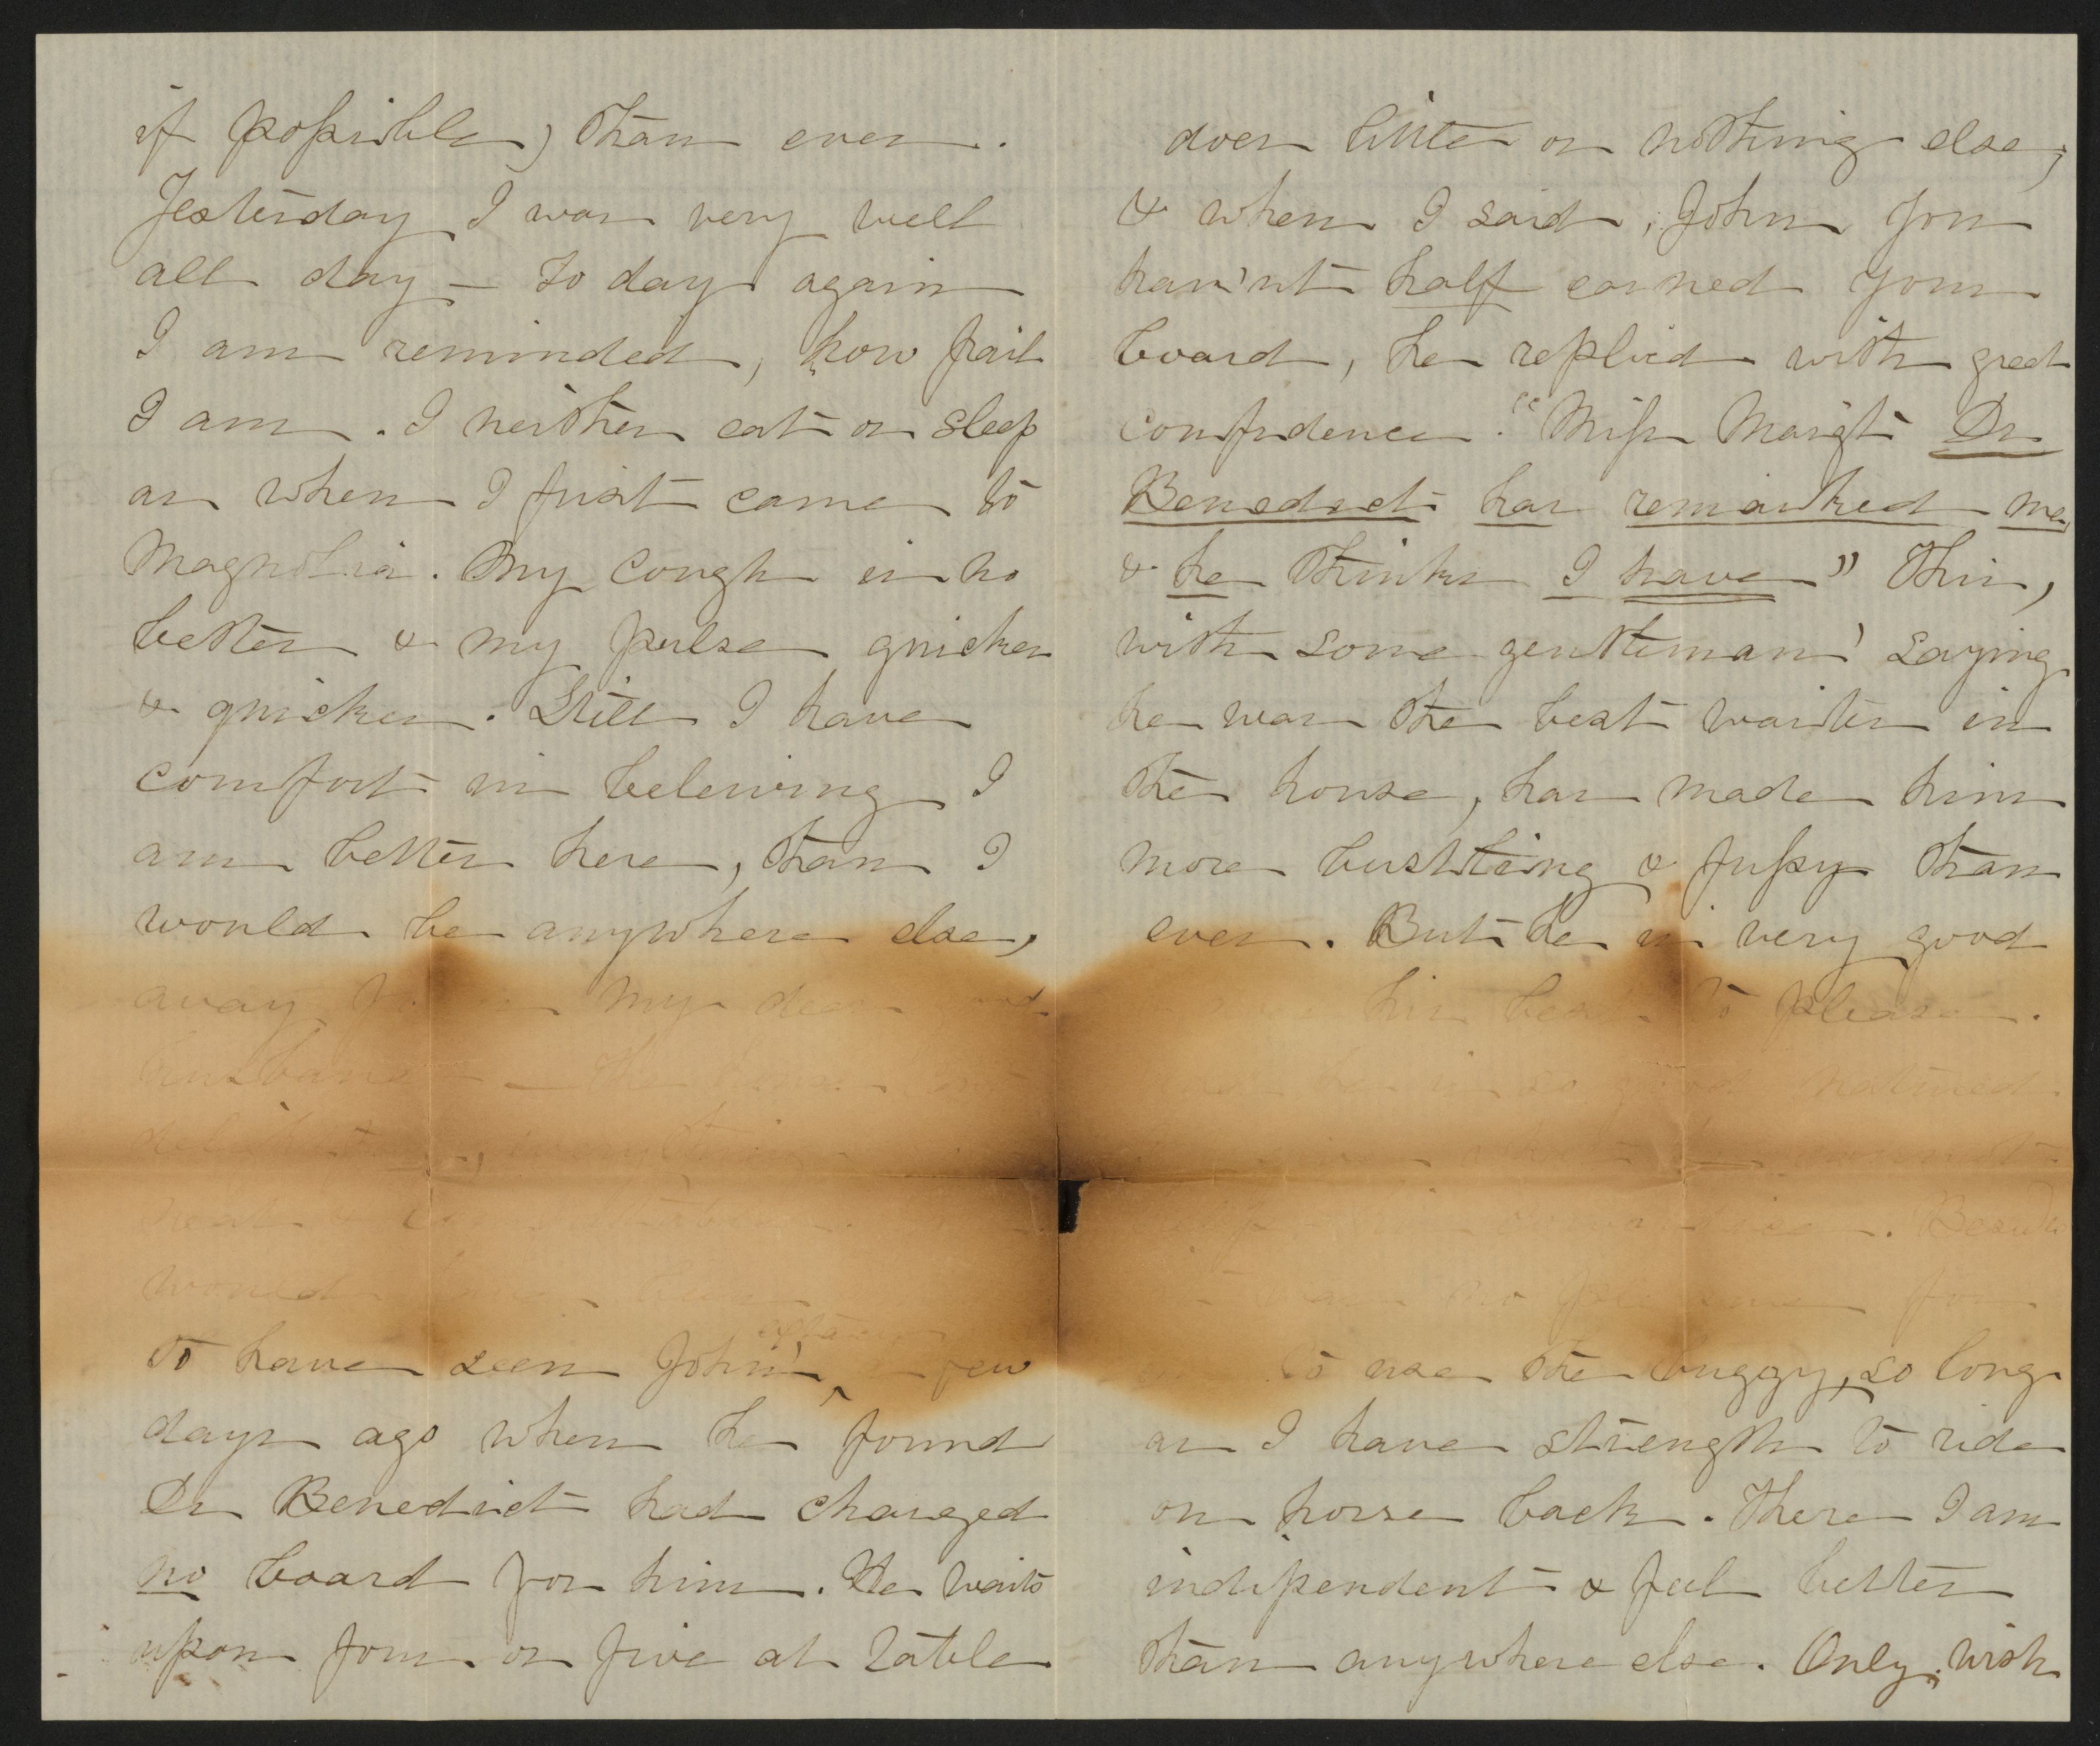 if possible) than ever.
Yesterday I was very well
all day – to day again
I am reminded, how frail
I am. I neither eat or sleep
as when I first came to
Magnolia. My cough is no
better & my pulse quicker
& quicker. Still I have
comfort in beleiving I
am better here, than I
would be anywhere else,
away my dear
husband – the
everything
neat &
would
after
to have seen John's few
days ago when he found
Dr Benedict had charged
no board for him. He waits
upon four or five at table
does little or nothing else,
& when I said, John you
hav'nt half earned your
board, he replied with great
confidence. "Miss Margt Dr
Benedict has remarked me
& he thinks I have" This,
with some gentleman' saying
he was the best waiter in
the house, has made him
more bustling & fussy than
ever. But he is very good
his best to please.
he is so good natured
cannot
. Beside
no pleasure for
to use the buggy, so long
as I have strength to ride
on horse back. There I am
independent & feel better
than anywhere else. Only wish